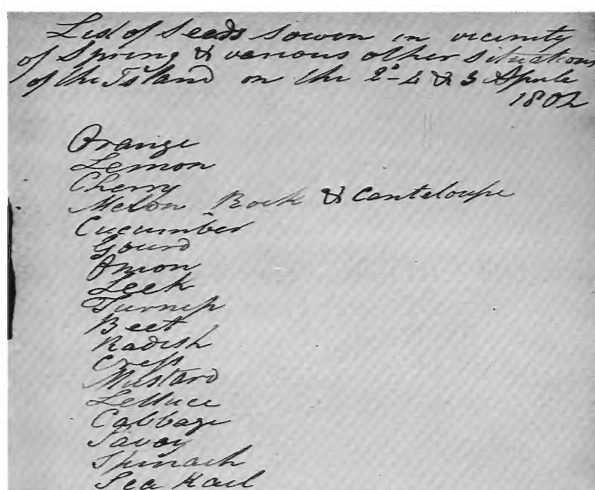 List of Seeds Sown in vicinity
of Spring & various other situations
of the Island on the 2d- 4 & 3 Aprile
1802
Orange
Lemon
Cherry
Melon Rock & Canteloupe
Cucumber
Gourd
Onion
Leek
Turnip
Beet
Radish
Cress
Mustard
Lettuce
Cabbage
Savoy
Spinach
Sea Kail